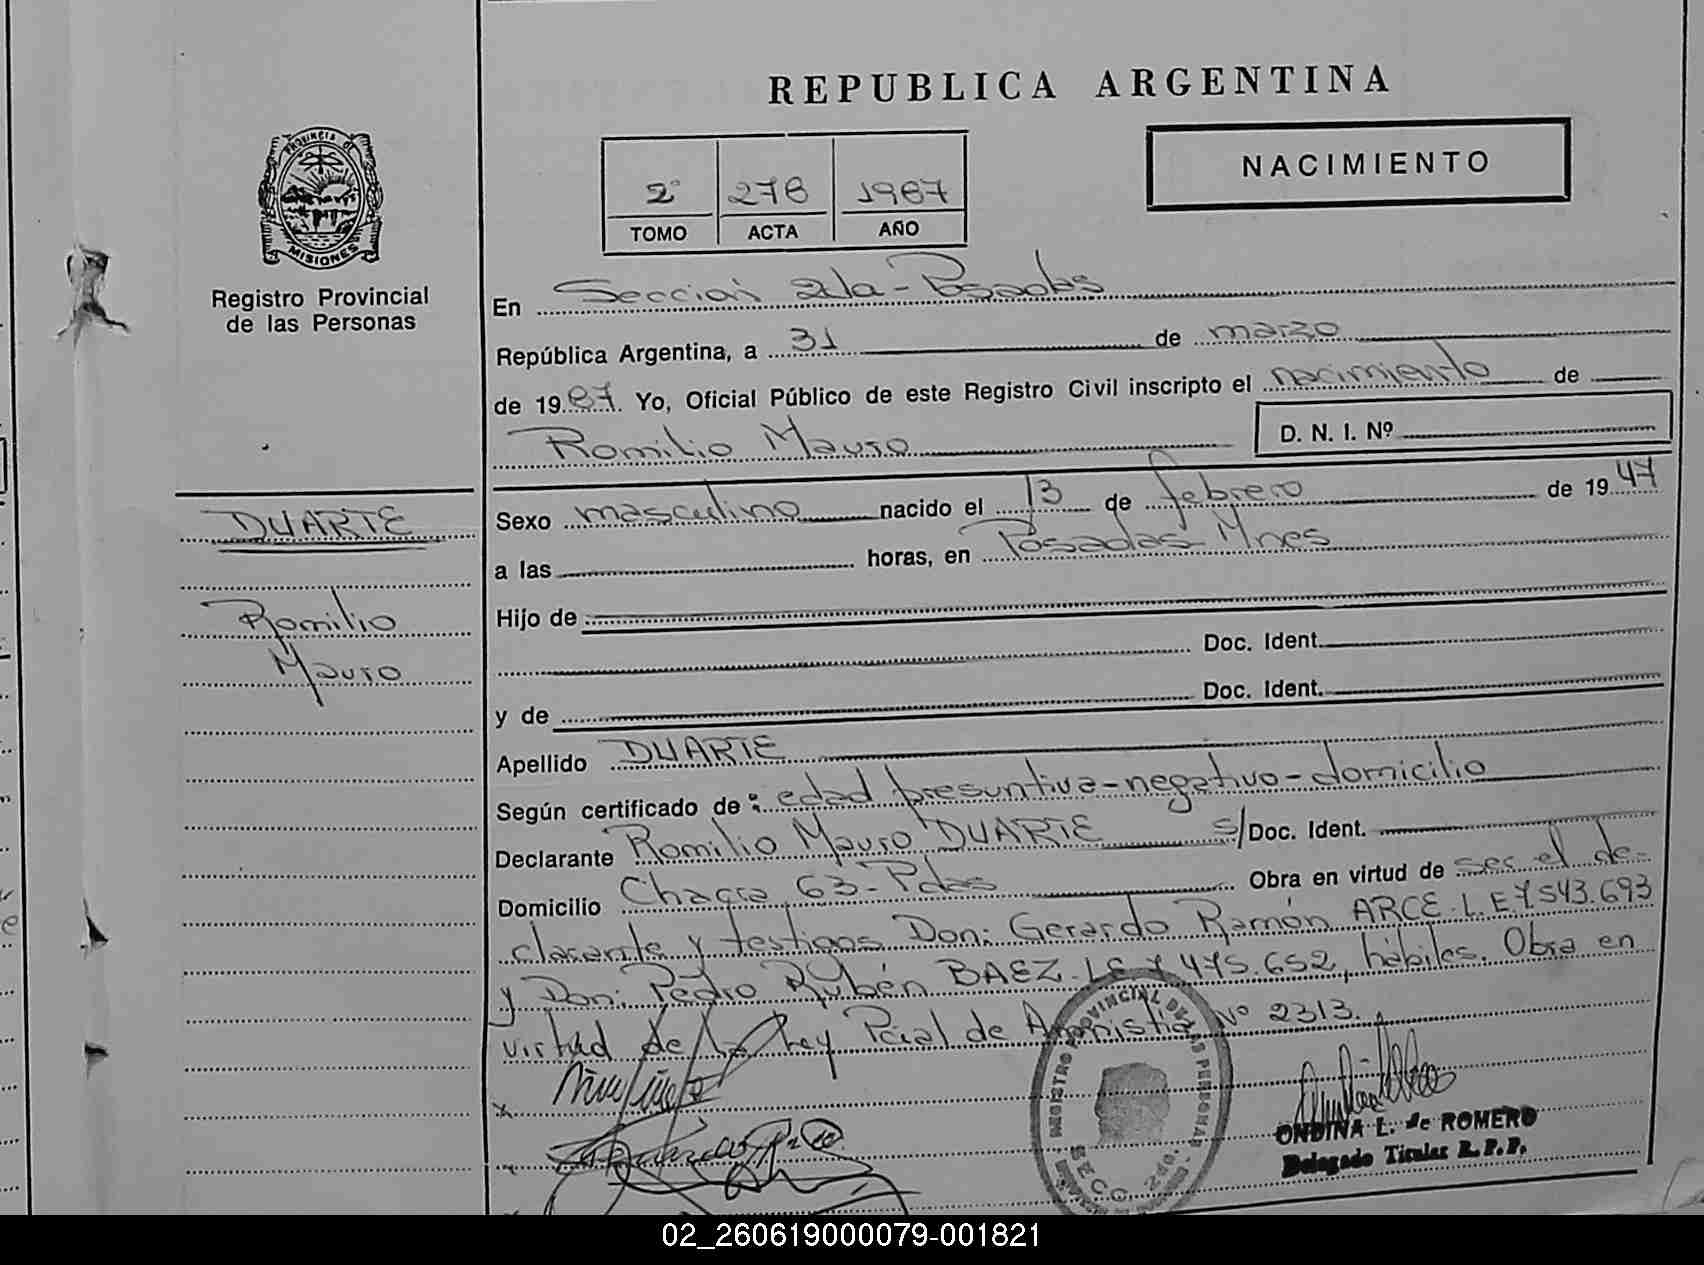 REPUBLICA ARGENTINA
PROVINCIA DE
MISIONES
Registro Provincial
de las Personas
2° 278 1987
TOMO ACTA AÑO
NACIMIENTO
En Sección 2da-Posadas
República Argentina, a 31 de marzo
de 1987. Yo, Oficial Público de este Registro Civil inscripto el nacimiento de
Romilio Mauro D. N. I. Nº
DUARTE
Romilio
Mauro
Sexo masculino nacido el 13 de febrero de 1947
a las horas, en Posadas-Mnes
Hijo de
Doc. Ident.
y de Doc. Ident.
Apellido DUARTE
Según certificado de: edad presuntiva-negativo-domicilio
Declarante Romilio Mauro DUARTE s/Doc. Ident.
Domicilio Chacra 63-Pdas Obra en virtud de ser el de-
clarante y testigos Don: Gerardo Ramón ARCE L.E.7.543.693
y Don: Pedro Rubén BAEZ L.E.7.475.652, hábiles. Obra en
virtud de la Ley Pcial de Amnistía Nº 2313.
REGISTRO PROVINCIAL DE LAS PERSONAS
SECC. 2da
ONDINA L. de ROMERO
Delegado Titular R.P.P.
02_260619000079-001821